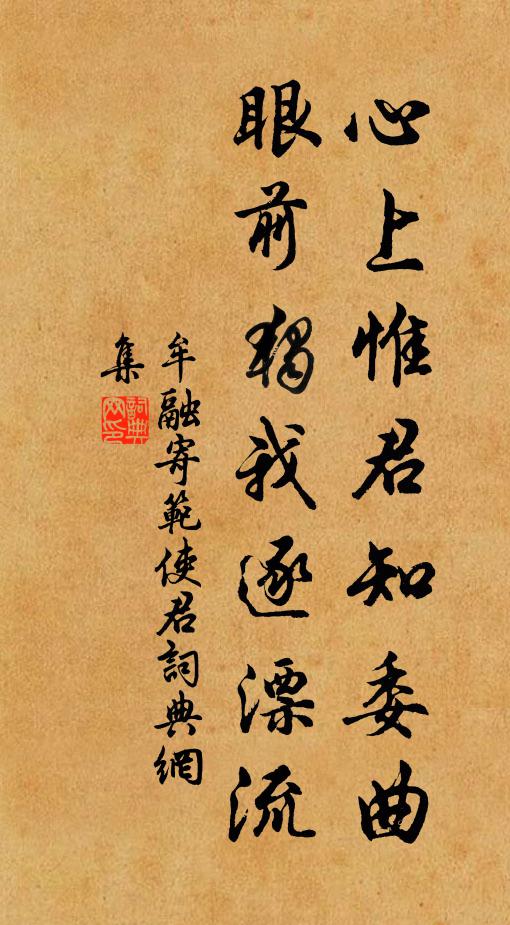 心上惟君知委曲
眼前獨我逐漂流
牟融寄範使君詞典網
集
詞典
网印